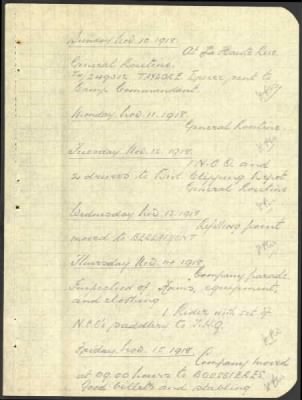 Sunday Nov. 10. 1918.
At La Haute Rue
General Routine.
T4/249312 TAYLOR Driver sent to
Camp Commandant
Monday Nov. 11. 1918.
General Routine
Tuesday Nov. 12. 1918.
1 N.C.O. and
2 drivers to Clipping Depot
General Routine
Wednesday Nov. 13. 1918
Refilling point
moved to
Thursday Nov. 14. 1918.
Company parade.
Inspection of Arms, equipment,
and clothing
1 Rider with set of
N.C.O's saddlery to
Friday Nov. 15. 1918.
Company moved
at 09.00 hours to BOUSSIERES
Good billets and stabling